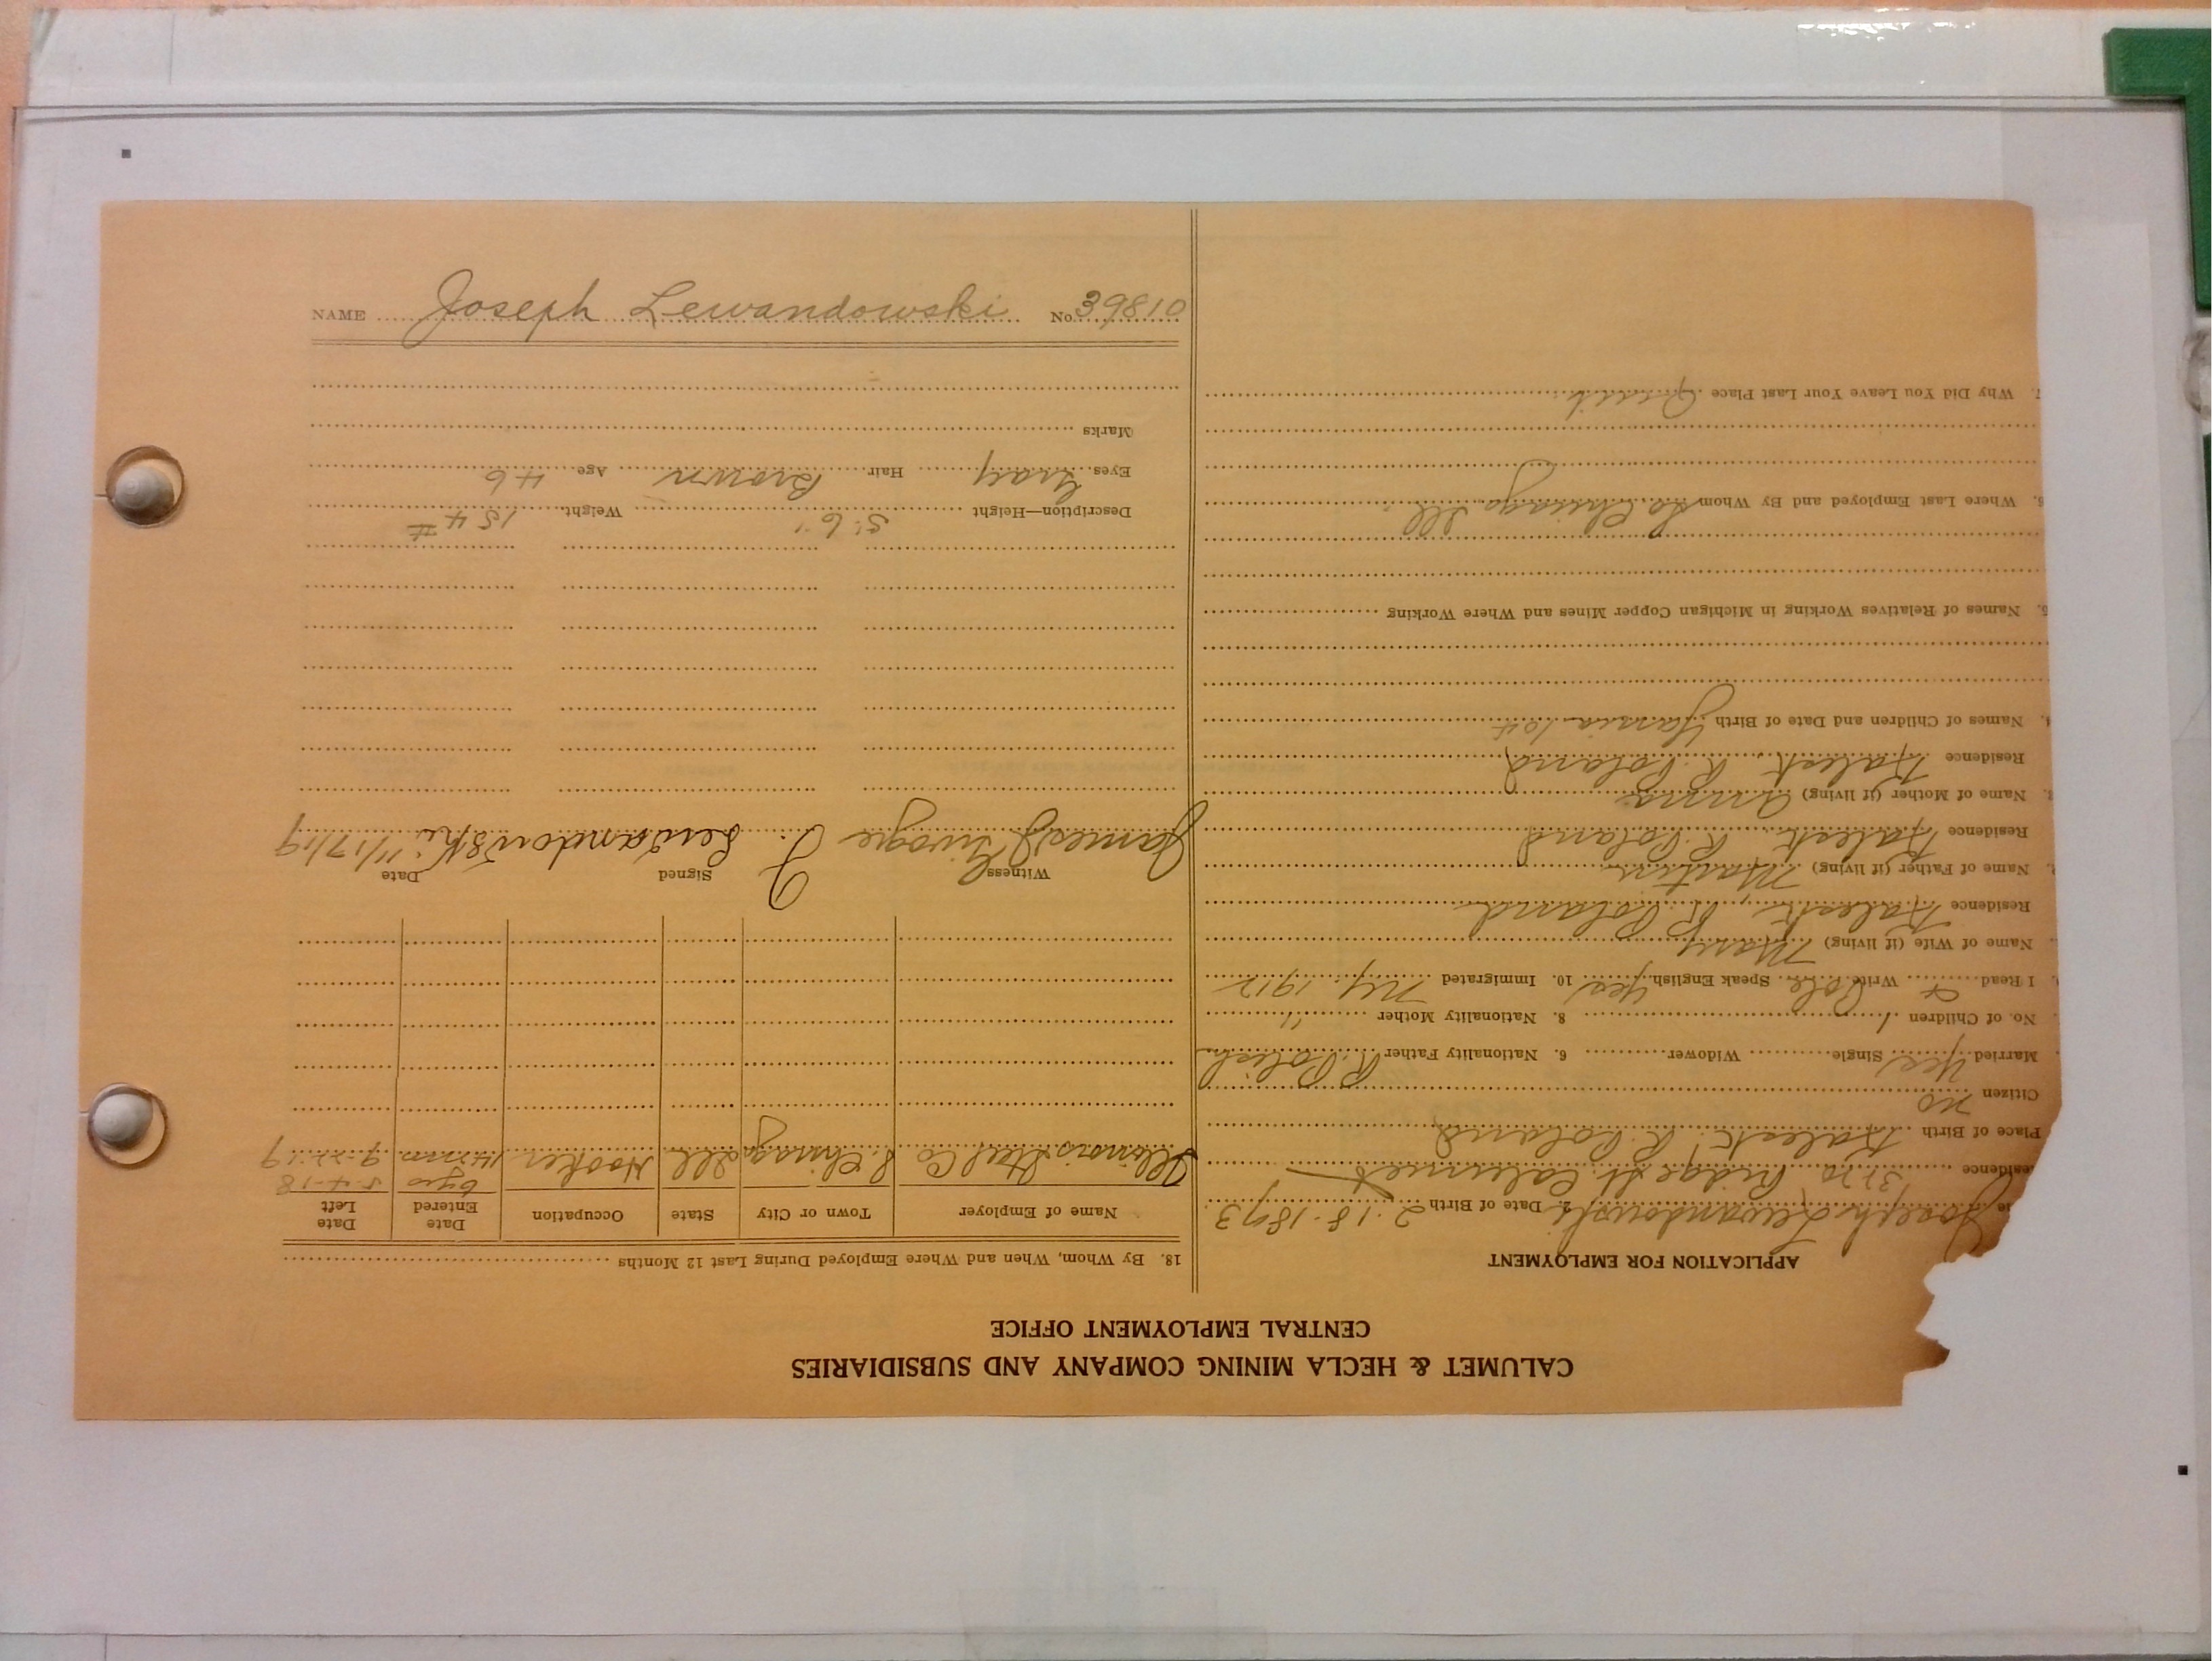 CALUMET & HECLA MINING COMPANY AND SUBSIDIARIES
CENTRAL EMPLOYMENT OFFICE
APPLICATION FOR EMPLOYMENT
Joseph Lewandowski 2. Date of Birth 2.18.1873
Residence 3120 Ridge St. Calumet
Place of Birth Kalest. R. Poland
Citizen no
Married Yes Single Widower 6. Nationality Father R. Polish
No. of Children 1 8. Nationality Mother "
I Read & Write Pole Speak English yes 10. Immigrated N.Y. 1912
Name of Wife (if living) Mary
Residence Kalest, R. Poland
Name of Father (if living) Martin
Residence Kalest R. Poland
Name of Mother (if living) Anna
Residence Kalest, R. Poland
4. Names of Children and Date of Birth
5. Names of Relatives Working in Michigan Copper Mines and Where Working
6. Where Last Employed and By Whom So. Chicago, Ill
7. Why Did You Leave Your Last Place
18. By Whom, When and Where Employed During Last 12 Months
Name of Employer Town or City State Occupation Date Entered Date Left
6 yrs 5-4-18
Illinois Steel Co S. Chicago Ill Hooker 14 mos 9-22-19
Witness Signed Date
James J. Lewandowski 11/17/19
Description—Height 5' 6" Weight 154 #
Eyes Gray Hair Brown Age 46
Marks
NAME Joseph Lewandowski No. 39810